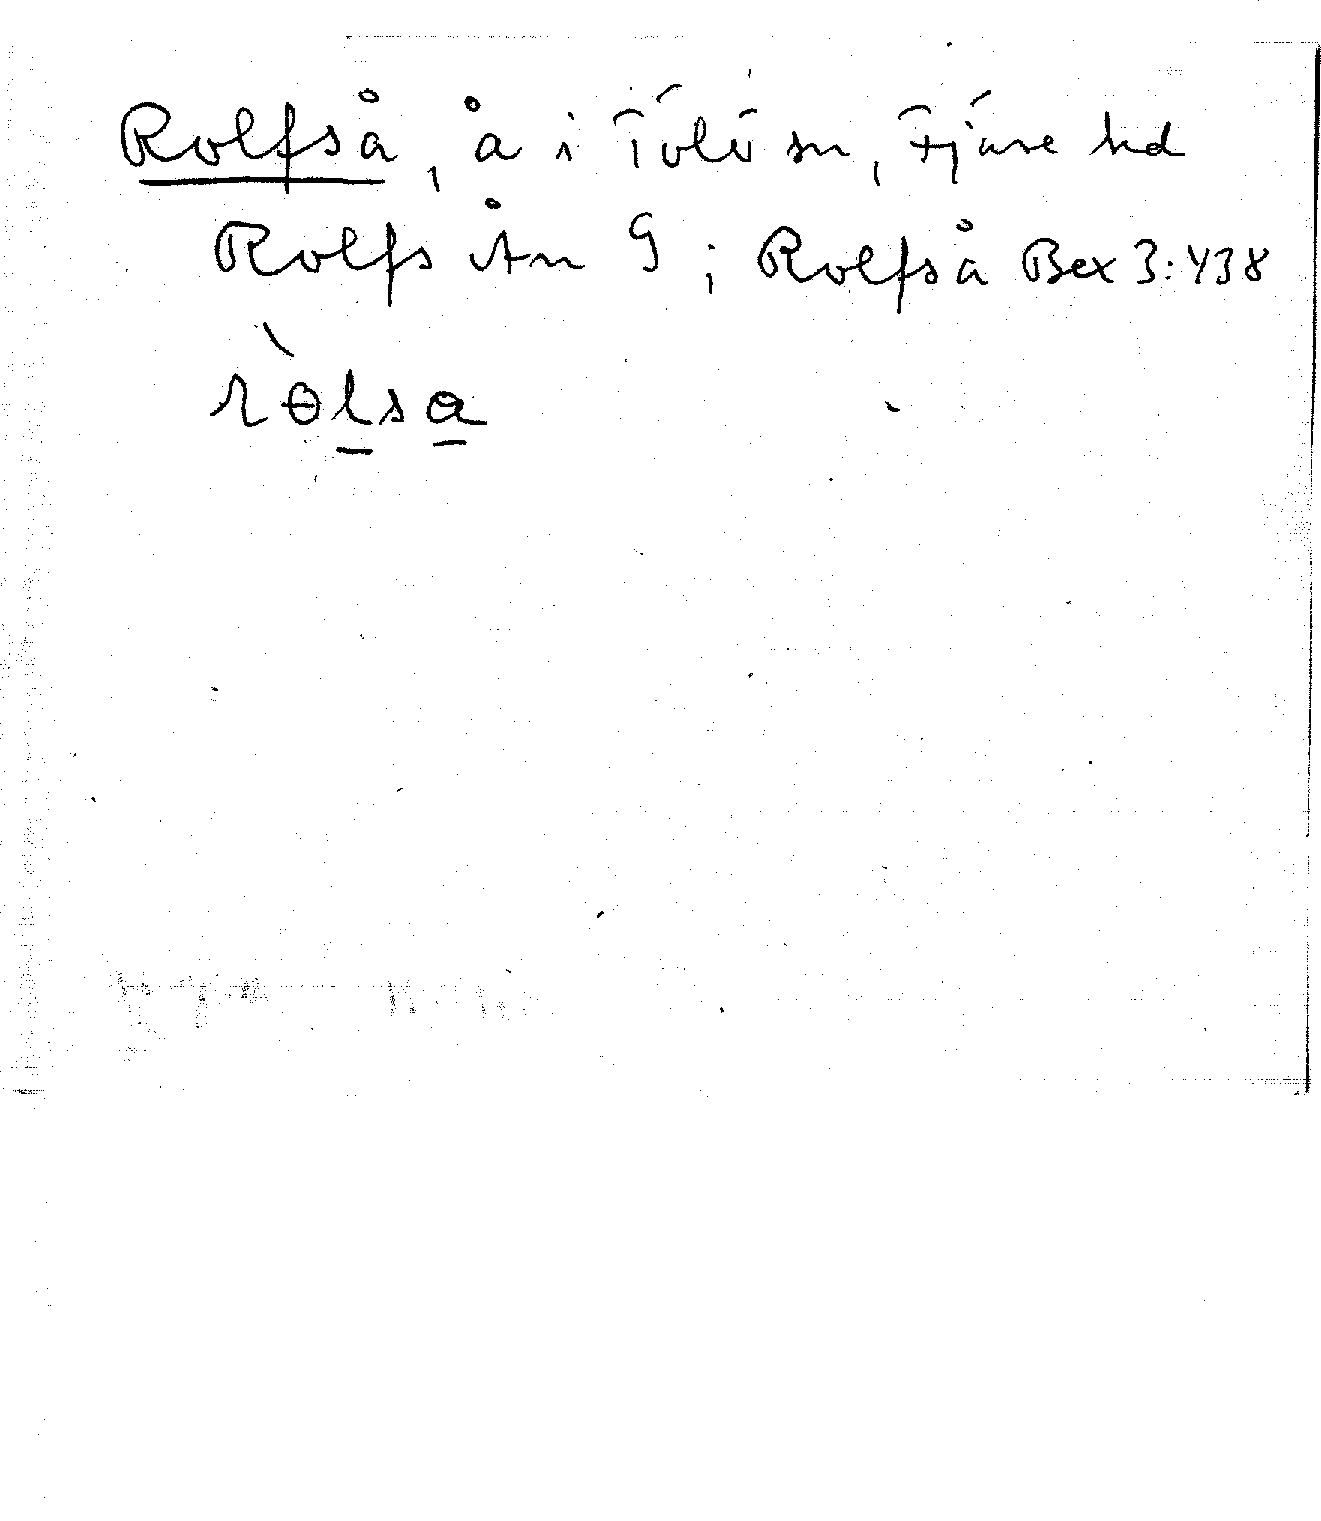 Rolfså, å i Tölö sn, Fjäre hd
Rolfs Ån G; Rolfså Bex 3:438
ròlsa